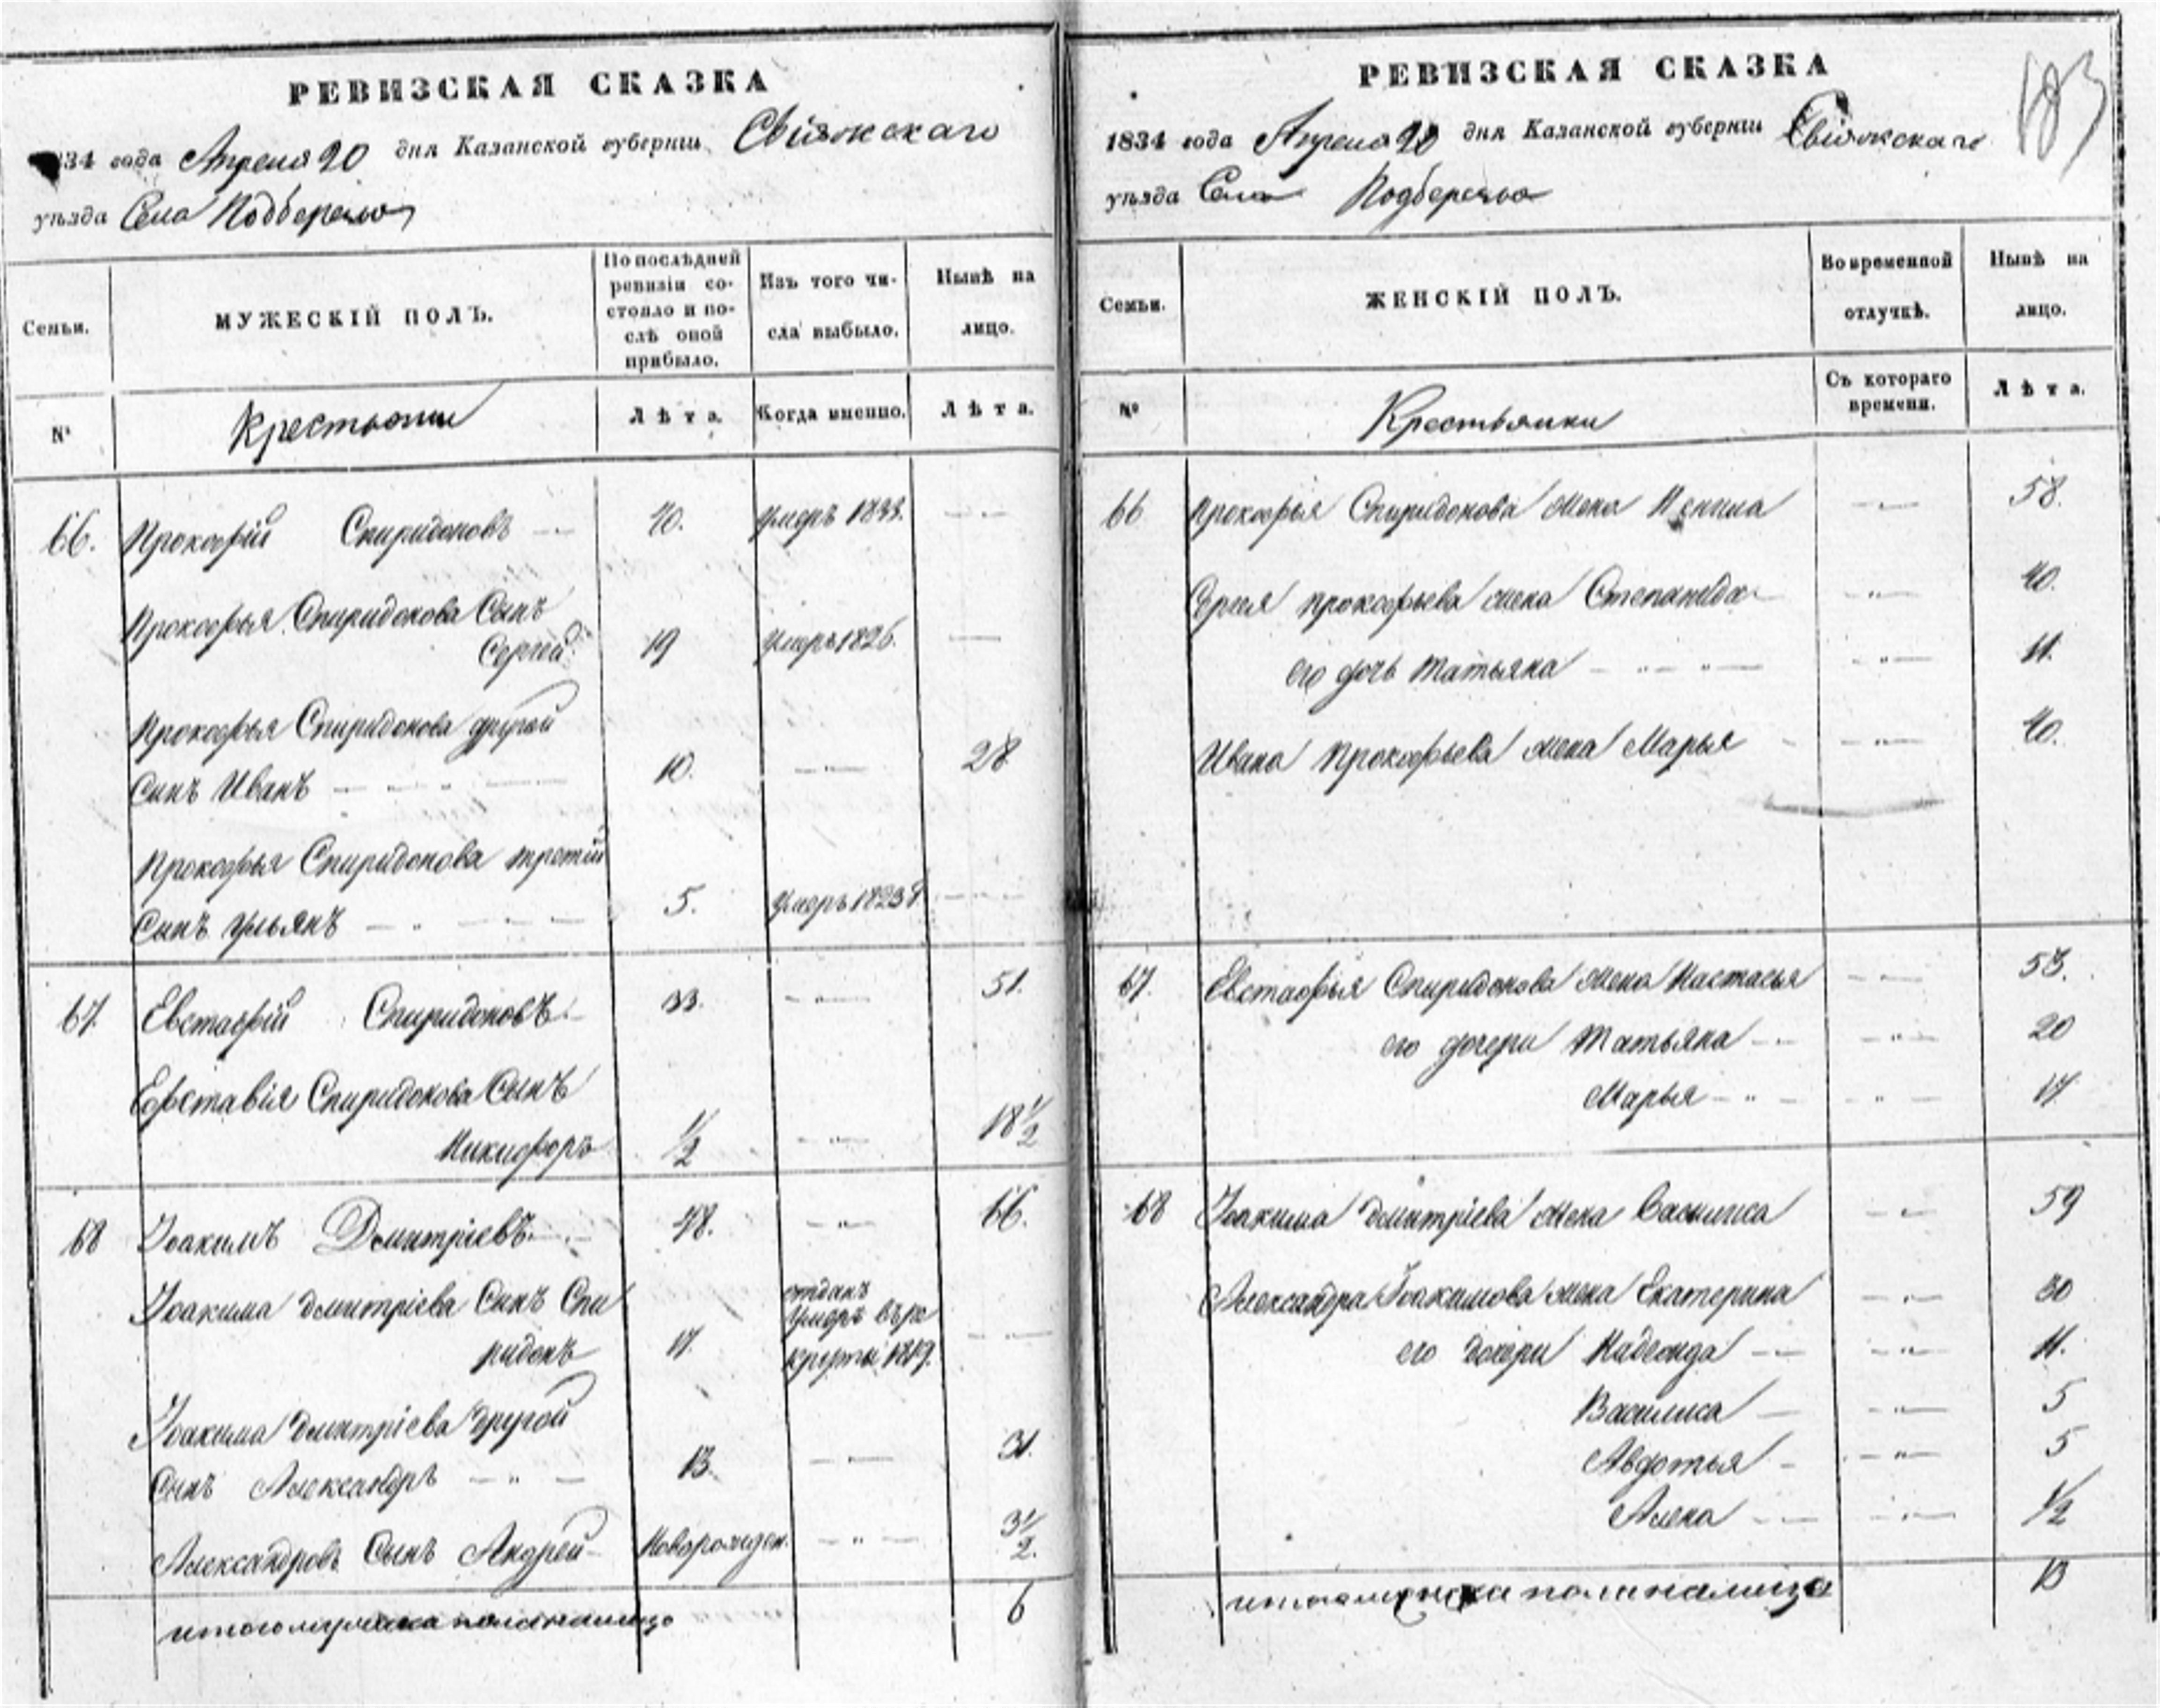 РЕВИЗСКАЯ СКАЗКА
34 года Апреля 20 дня Казанской губернии Свіяжскаго
уѣзда Села Подберезья
Семьи.
МУЖЕСКІЙ ПОЛЪ.
По послѣдней ревизіи со-
стояло и по-
слѣ оной
прибыло.
Изъ того чи-
сла выбыло.
Нынѣ на
лицо.
№
Крестьяни
Лѣта.
Когда именно.
Лѣта.
66. Прокофій Спиридоновъ 40. умеръ 1833.
Прокофья Спиридонова Сынъ
Сергей 19 умеръ 1826.
Прокофья Спиридонова другой
Сынъ Иванъ 10. 28
Прокофья Спиридонова третій
Сынъ Ульянъ 5. умеръ 1823
67. Евстафій Спиридоновъ 33. 51.
Ефставія Спиридонова Сынъ
Микифоръ 1/2 18 1/2
68 Іоакимъ Дмитріевъ 48. 66.
Іоакима дмитріева Сынъ Спи
ридонъ 17. отданъ
въ ре
круты 1819.
Іоакима дмитріева другой
Сынъ Александръ 13. 31.
Александровъ Сынъ Андрей Новорожден. 3 1/2.
итого мужска пола налицо 6
РЕВИЗСКАЯ СКАЗКА
183
1834 года Апреля 20 дня Казанской губерніи Свіяжскаго
уѣзда Села Подберезья
Семьи.
ЖЕНСКІЙ ПОЛЪ.
Во временной
отлучкѣ.
Нынѣ на
лицо.
№
Крестьянки
Съ котораго
времени.
Лѣта.
66 Прокофья Спиридонова жена 58.
Сергея прокофьева жена Степанида 40.
его дочь Татьяна 11.
Ивана Прокофьева жена Марья 40.
67. Евстафья Спиридонова жена Настасья 53.
его дочери Татьяна 20
Марья 17
68 Іоакима дмитріева жена Василиса 59
Александра Іоакимова жена Екатерина 30
его дочери Надежда 11.
Василиса 5
Авдотья 5
Алена 1/2
итого женска пола налицо 13